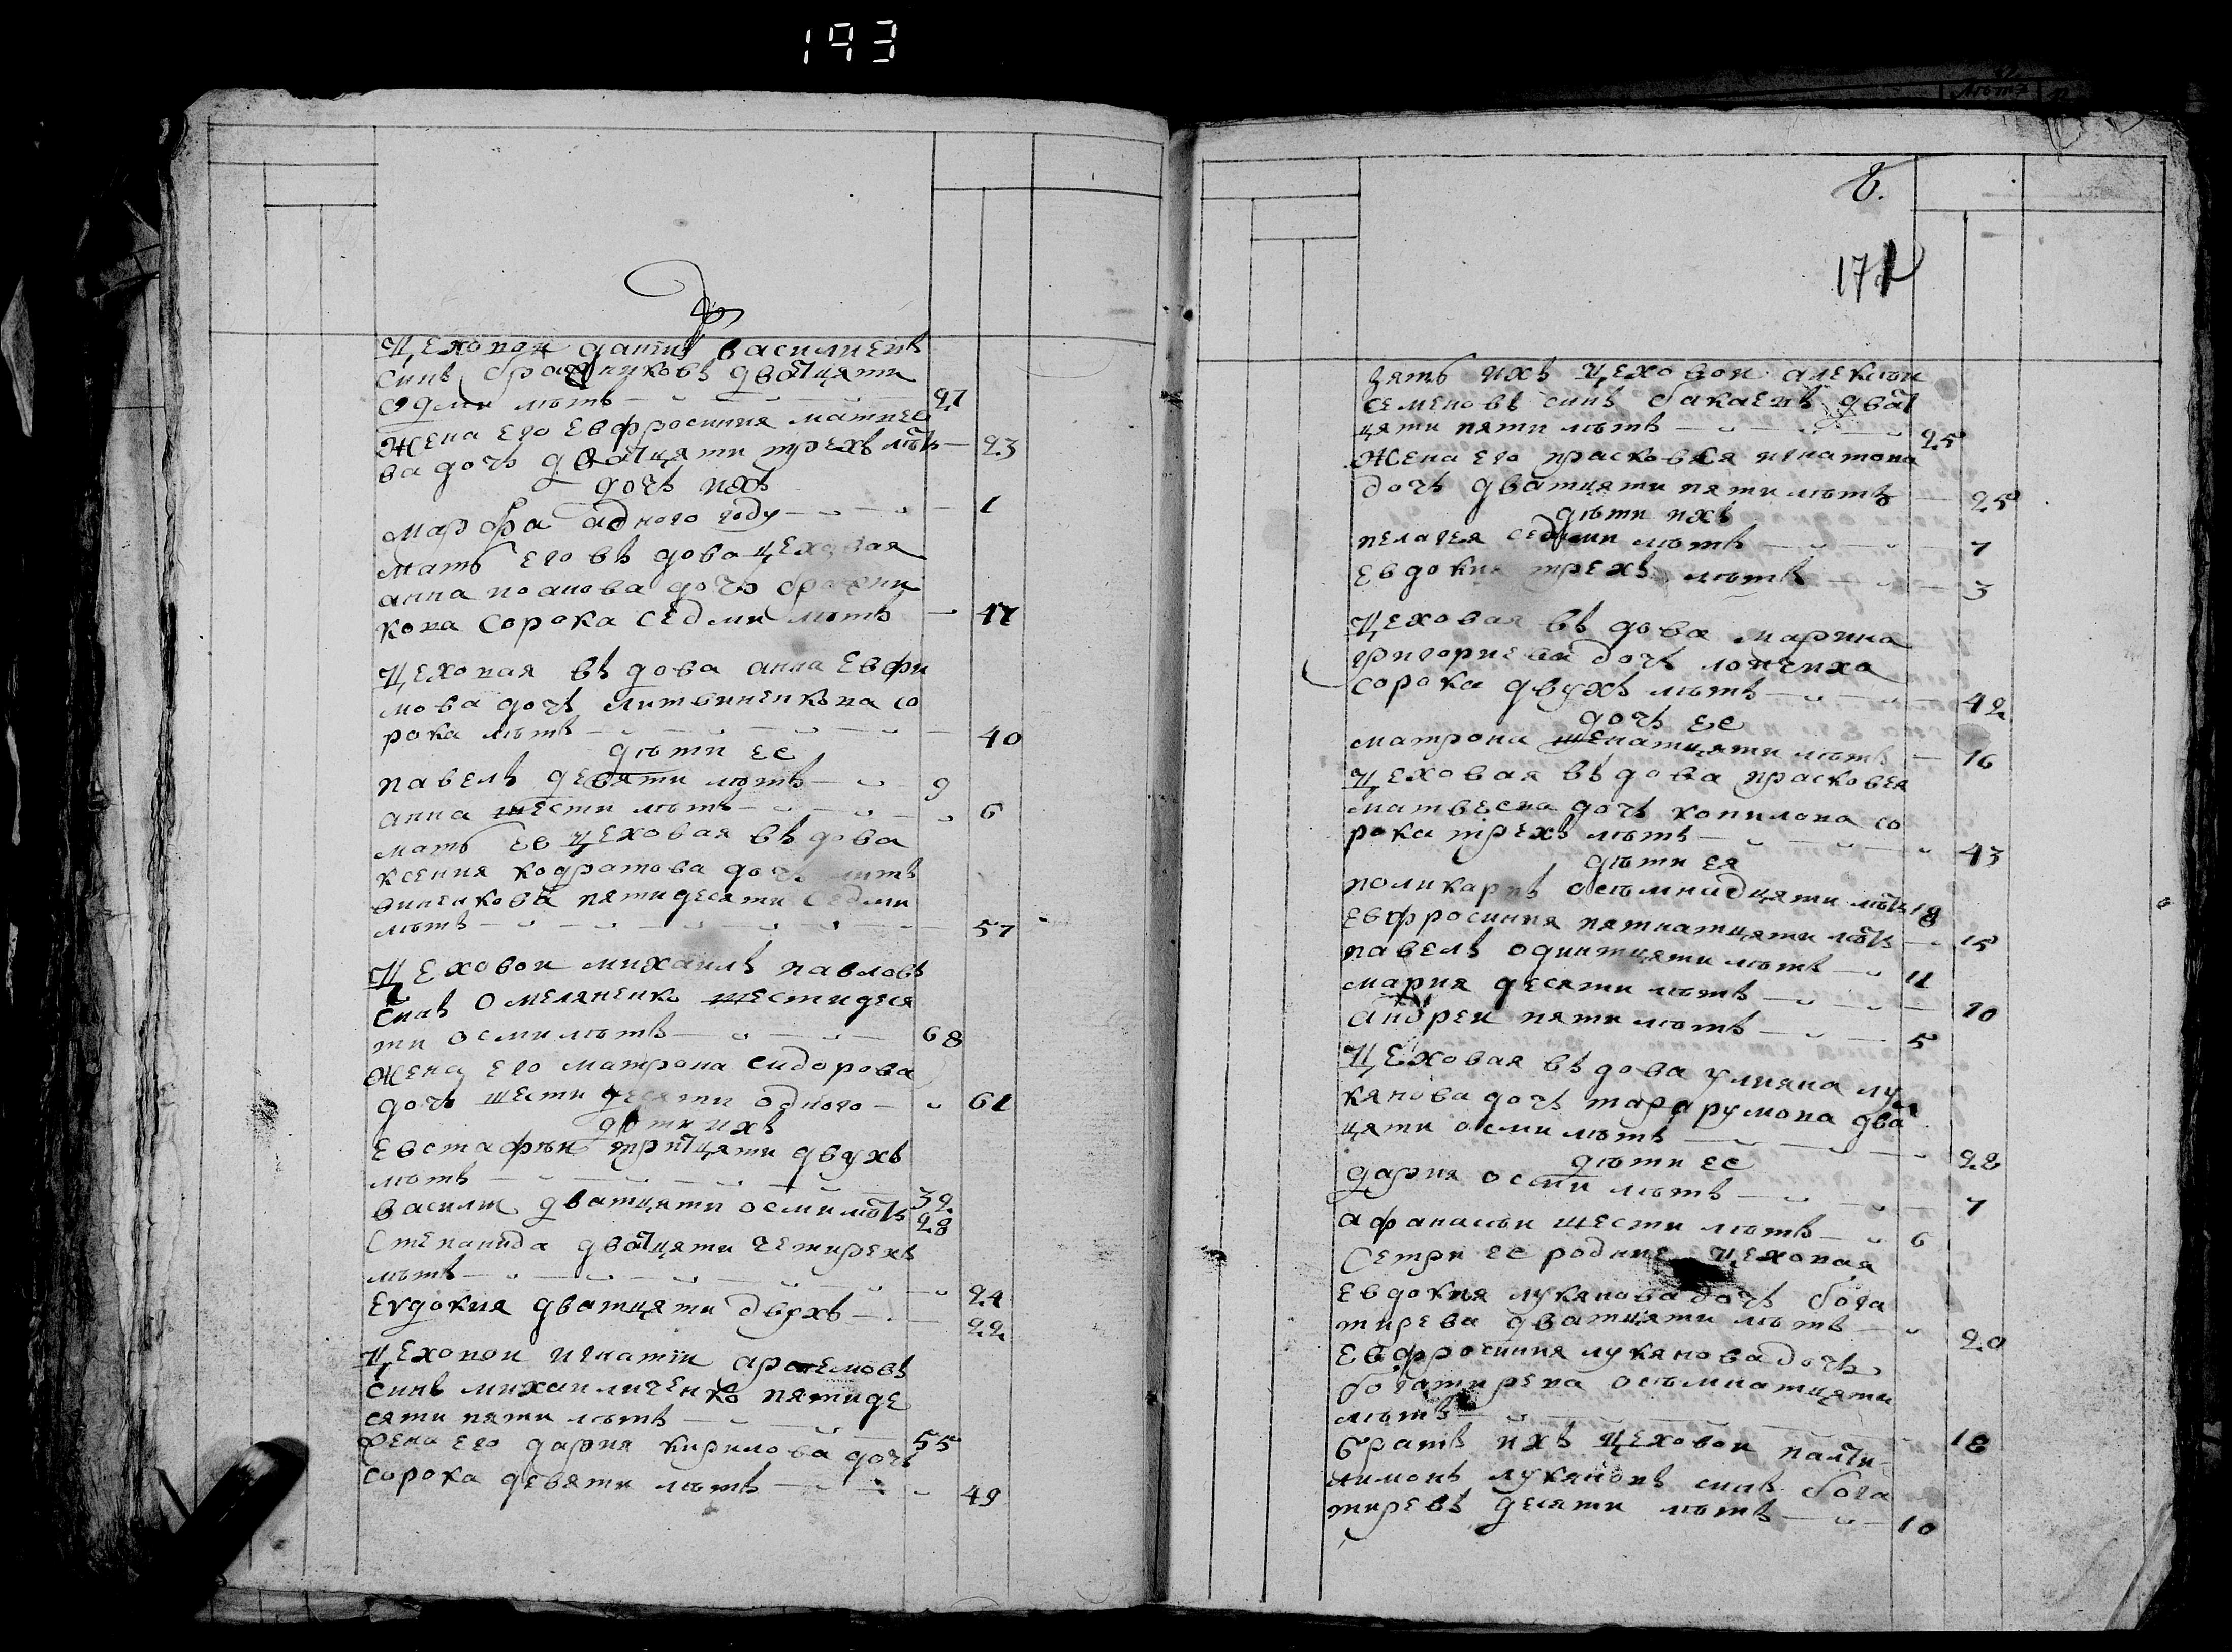 193
Цеховои данiил василиевъ
синъ бражниковъ дватцяти
седми лѣтъ 27
Жена его Евфросиния матвее
ва дочъ дватцяти трехъ лѣтъ 23
дочъ ихъ
марфа адного году 1
мать его въдова цеховая
анна иванова дочъ бражни
кова сорока седми лѣтъ 47
Цеховая въдова анна Евфи
мова дочъ литвиненкова со
рока лѣтъ 40
дѣти ее
павелъ девяти лѣтъ 9
анна шести лѣтъ 6
мать ее цеховая въдова
ксения кодратова дочъ литъ
виненкова пятидесяти седми
лѣтъ 57
Цеховои михаилъ павловъ
синъ Омеляненко шестидеся
ти осми лѣтъ 68
Жена его матрона сидорова
дочъ шестидесяти одного 61
дѣти ихъ
Евстафѣи тритцяти двухъ
лѣтъ 32
василъ дватцяти осми лѣтъ 28
Степанида дватцяти четирехъ
лѣтъ 24
Евдокия дватцяти двухъ 22
Цеховои игнатiи аротемовъ
синъ михаиличенко пятиде
сяти пяти лѣтъ 55
Жена его дария кирилова дочъ
сорока девяти лѣтъ 49
171
зять ихъ цеховои алексѣи
семеновъ синъ бакаевъ дват
цяти пяти лѣтъ 25
Жена его прасковея игнатова
дочъ дватцяти пяти лѣтъ 25
дѣти ихъ
пелагея седми лѣтъ 7
Евдокия трехъ лѣтъ 3
Цеховая въдова марина
григориева дочъ
сорока двухъ лѣтъ 42
дочъ ее
матрона шенатцяти лѣтъ 16
Цеховая въдова прасковея
матвеева дочъ копилова со
рока трехъ лѣтъ 43
дѣти ея
поликарпъ осѣмнадцяти лѣтъ 18
Евфросиния пятнатцяти лѣтъ 15
павелъ одинтцяти лѣтъ 11
мария десяти лѣтъ 10
андреи пяти лѣтъ 5
Цеховая въдова улияна лу
кянова дочъ тарарумова дват
цяти осми лѣтъ 28
дѣти ее
дария осми лѣтъ 7
афанасѣи шести лѣтъ 6
Сетри ее родние цеховая
Евдокия лукянова дочъ бога
тирева дватцяти лѣтъ 20
Евфросиния лукянова дочъ
богатирева осѣмнатцяти
лѣтъ 18
братъ ихъ цеховои панти
лимонъ лукяновъ синъ бога
тиревъ десяти лѣтъ 10